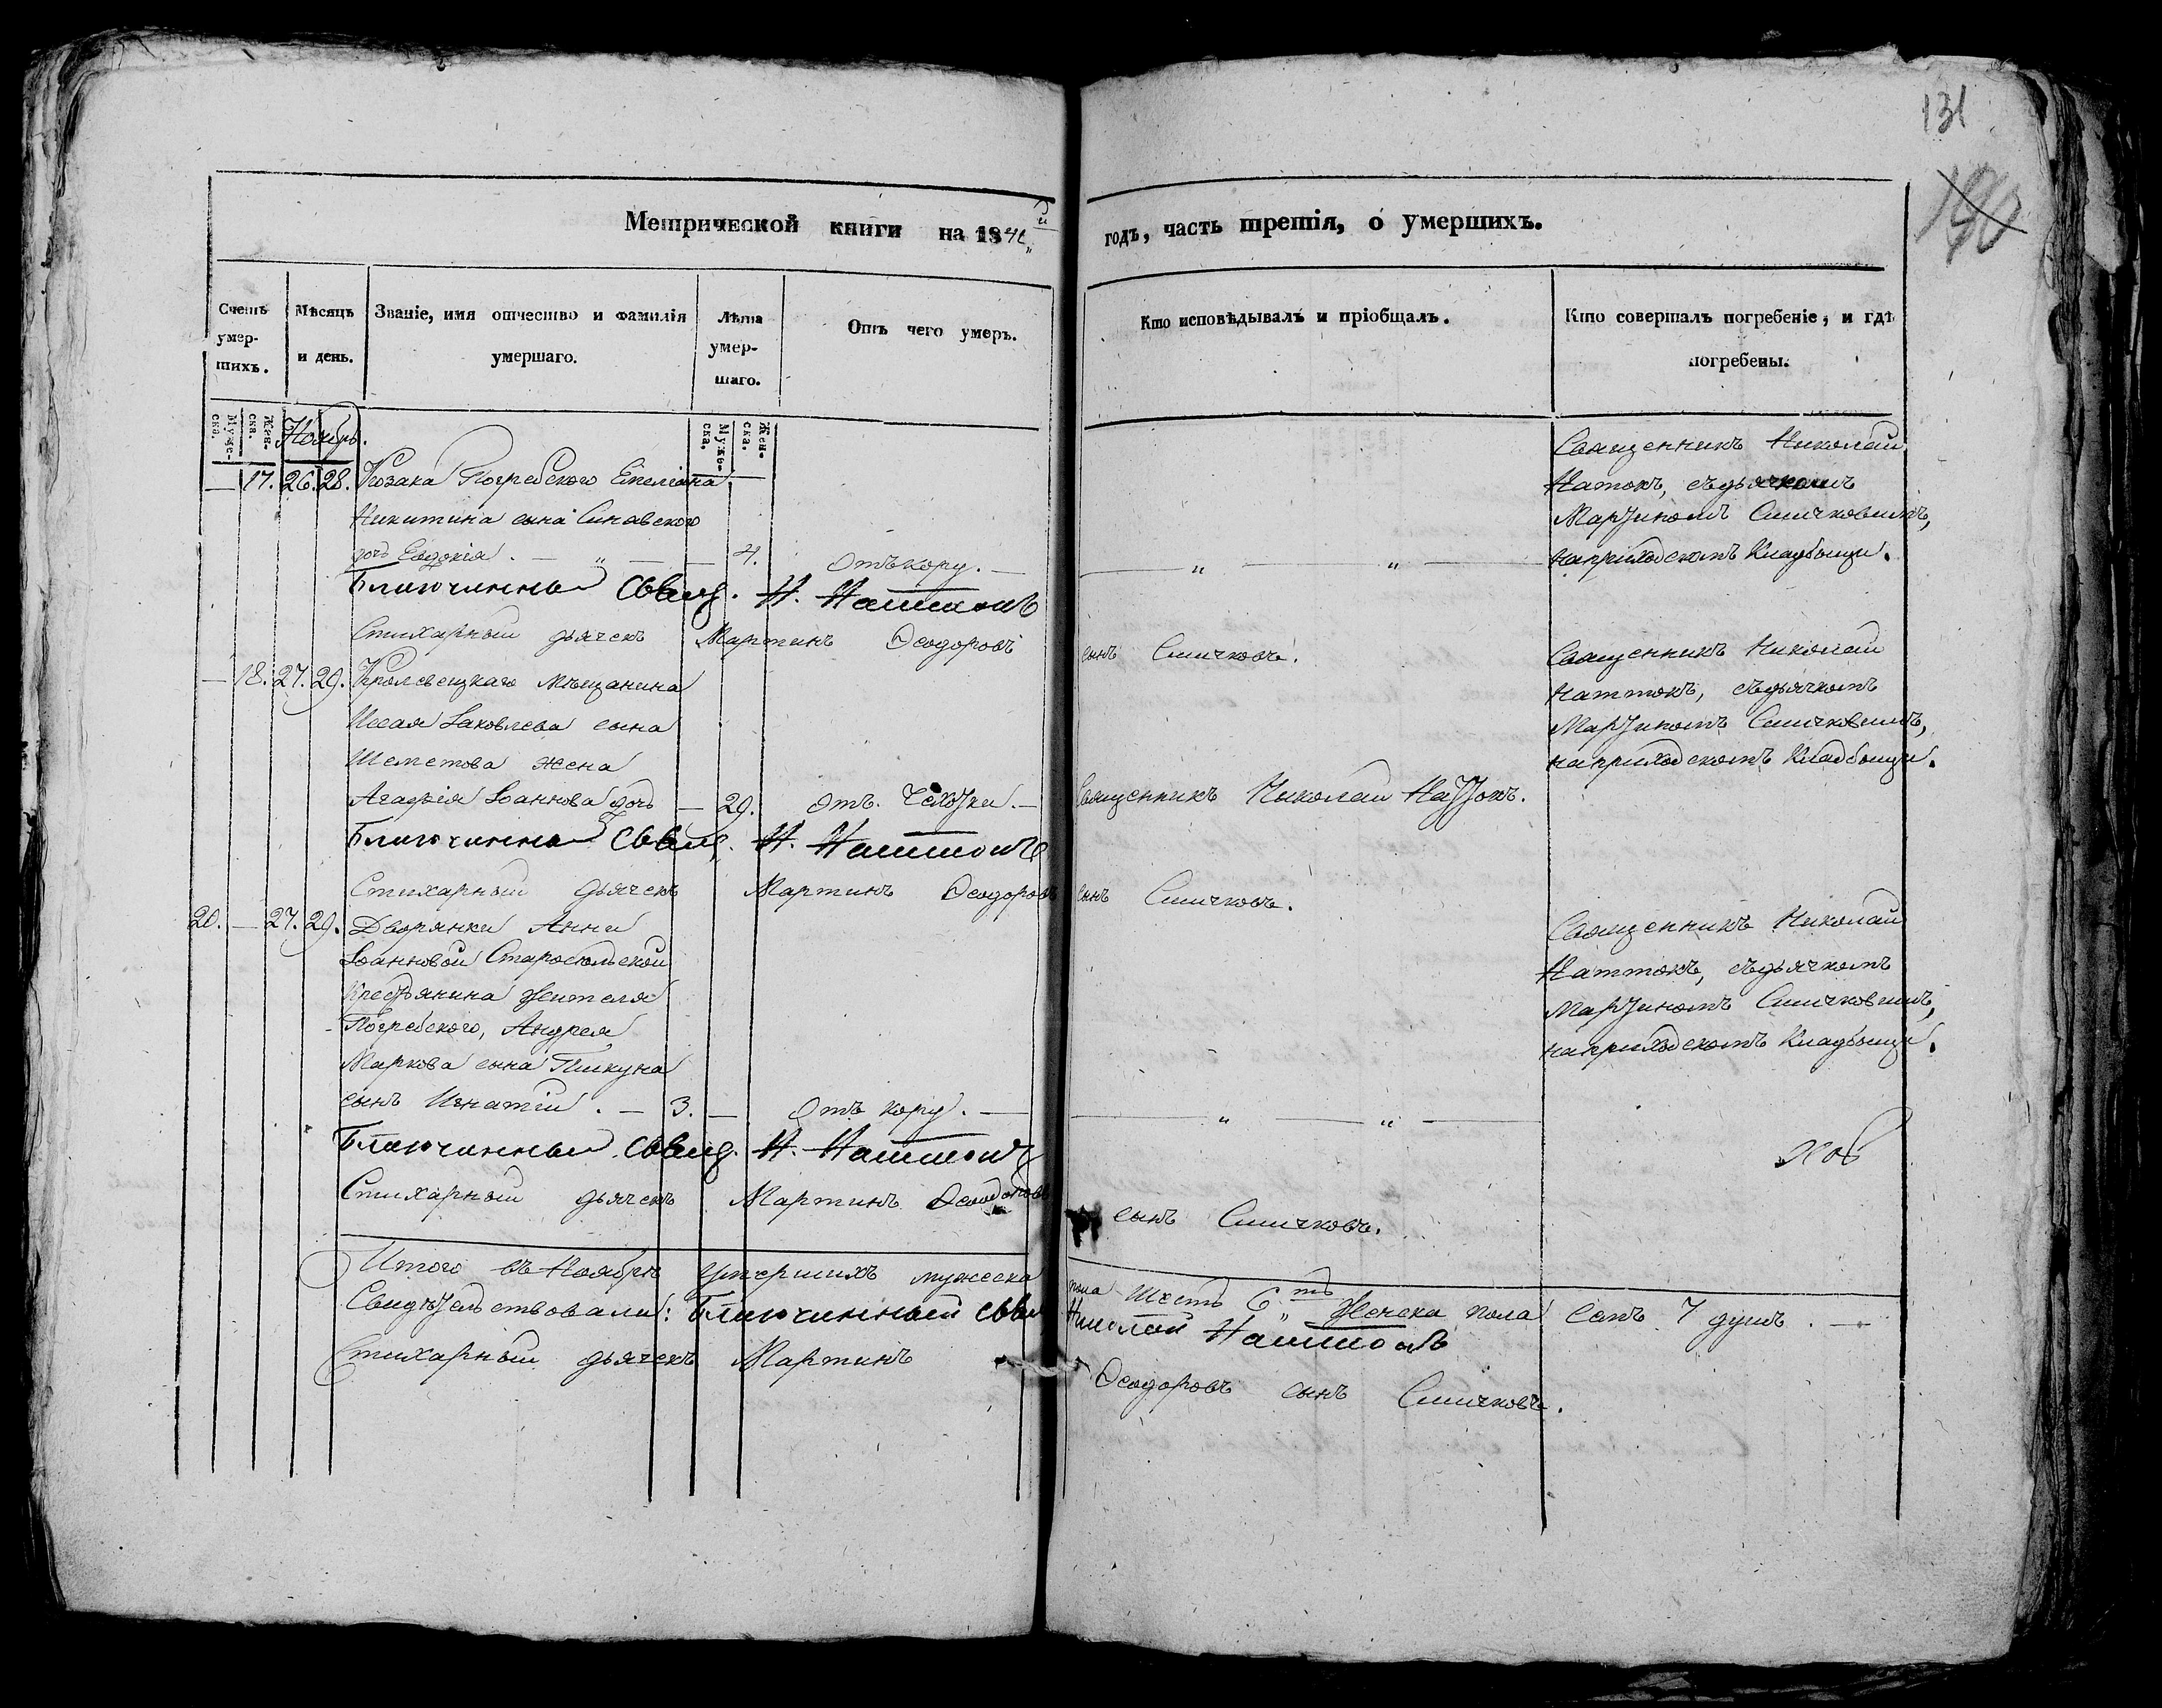 131
190
Метрической книги на 184
годъ, часть третія, о умершихъ.
Счетъ умер-шихъ.
Мѣсяцъ и день.
Званіе, имя отчество и фамилія умершаго.
Лѣта умер-шаго.
Отъ чего умеръ.
Кто исповѣдывалъ и пріобщалъ.
Кто совершалъ погребеніе, и гдѣ погребены.
Муже-ска.
Жен-ска.
Ноябрь.
Муже-ска.
Жен-ска.
— 17. 26. 28. Козака Погребского Емеліана —
Никитина сына Синявского
дочь Евдокія . — „ — 4. Отъ кору. —
— „ — „ —
Священникъ Николай
Наттокъ, съ дьячкомъ
Мартиномъ Симчковимъ,
на приходскомъ кладбищи.
Благочинный Свящ. Н. Наттокъ
Стихарный дьячекъ Мартинъ Ѳеодоровъ
сынъ Симчковъ.
— 18. 27. 29. Кролевецкаго Мѣщанина
Исаія Іаковлева сына
Шеметова жена
Агафія Іоаннова дочь — 29. Отъ Чехотки. —
Священникъ Николай Наттокъ.
Священникъ Николай
Наттокъ, съ дьячкомъ
Мартиномъ Симчковимъ,
на приходскомъ кладбищи.
Благочинный Свящ. Н. Наттокъ
Стихарный дьячекъ Мартинъ Ѳеодоровъ
сынъ Симчковъ.
20. — 27. 29. Дворянки Анни
Іоанновой Старосельской
Крестьянина жителя
Погребского, Андрея
Маркова сына Пикуна
сынъ Игнатій . — 3. — Отъ кору. —
— „ — „ —
Священникъ Николай
Наттокъ, съ дьячкомъ
Мартиномъ Симчковимъ,
на приходскомъ кладбищи.
Благочинный Свящ. Н. Наттокъ
Стихарный дьячекъ Мартинъ Ѳеодоровъ
сынъ Симчковъ.
Итого въ Ноябрѣ умершихъ мужеска
пола шесть 6 ть Женска пола семь 7 душъ. —
Свидѣтельствовали: Благочинный Свящ
Николай Наттокъ
Стихарный дьячекъ Мартинъ
Ѳеодоровъ сынъ Симчковъ.